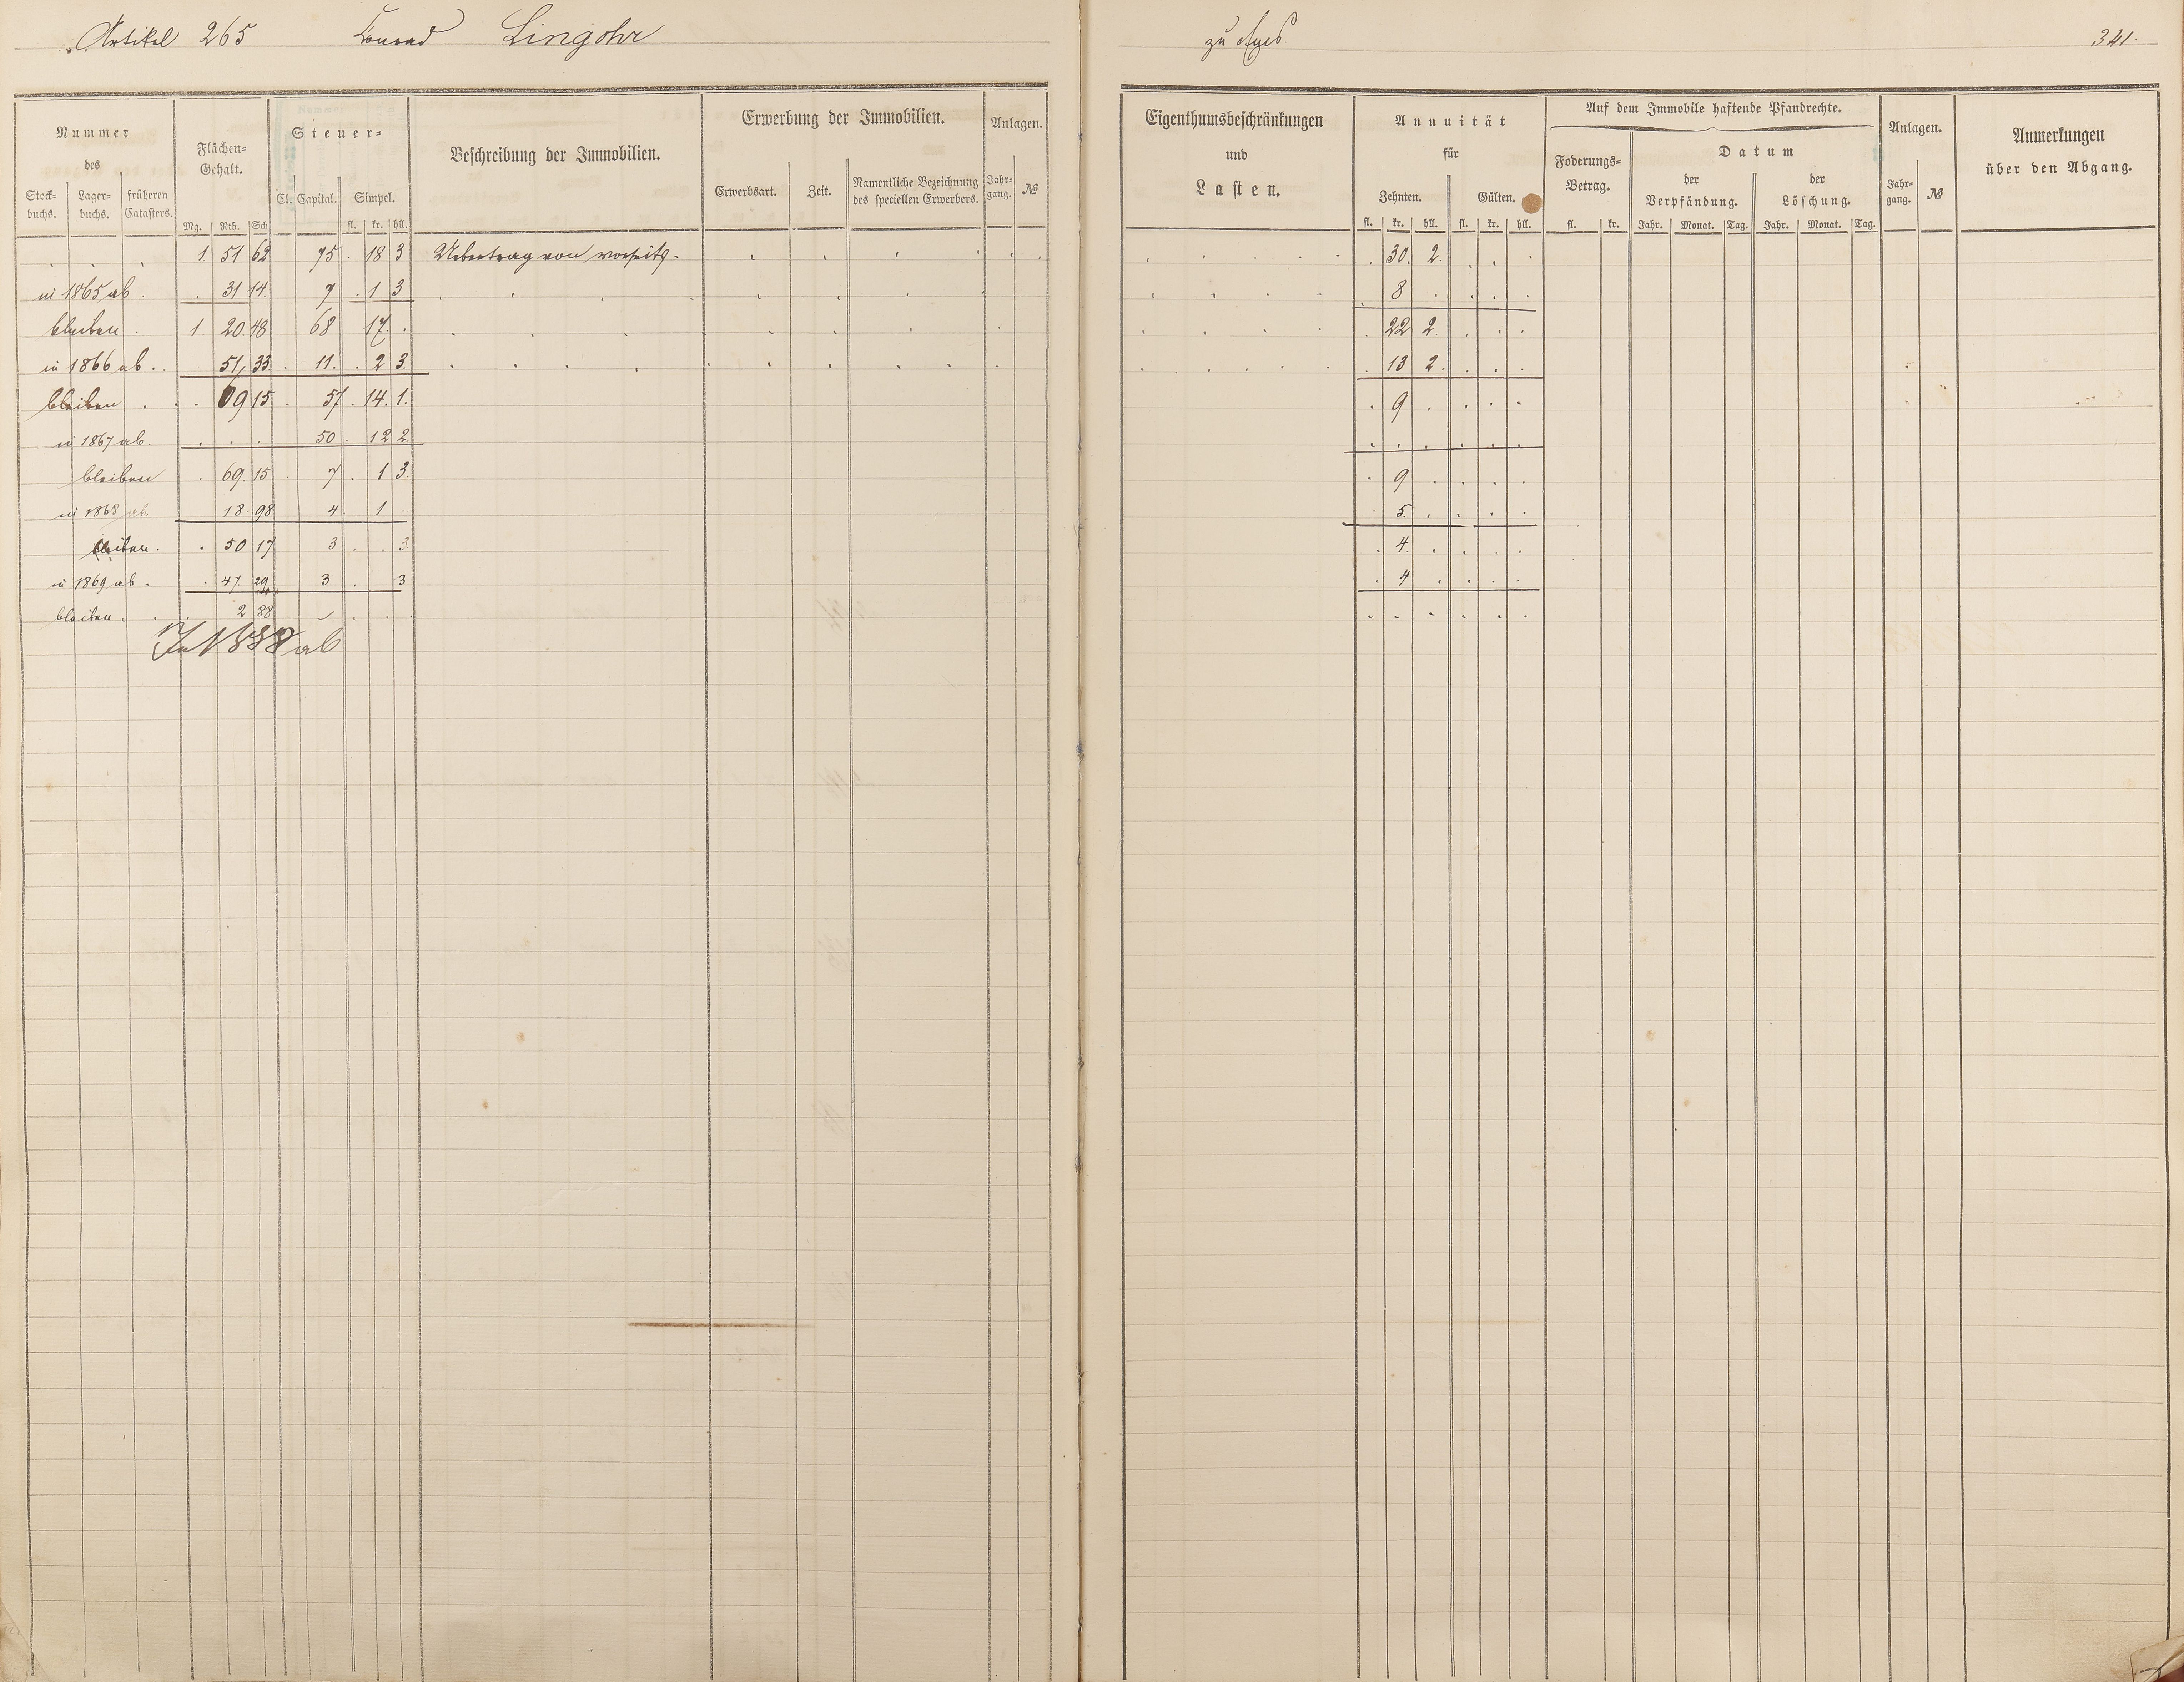 Artikel 265 Conrad Lingohr
zu
341.
Nummer
des
Stock-
buchs.
Lager-
buchs.
früheren
Catasters.
Flächen-
Gehalt.
Mg. Rth. Sch
Steuer-
Cl. Capital. Simpel.
fl. kr. hll.
Beschreibung der Immobilien.
Erwerbung der Immobilien.
Erwerbsart. Zeit.
Namentliche Bezeichnung
des speciellen Erwerbers.
Anlagen.
Jahr-
gang.
№
Eigenthumsbeschränkungen
und
Lasten.
Annuität
für
Zehnten. Gülten.
fl. kr. hll. fl. kr. hll.
Auf dem Immobile haftende Pfandrechte.
Foderungs-
Betrag.
fl. kr.
Datum
der
Verpfändung.
Jahr. Monat. Tag.
der
Löschung.
Jahr. Monat. Tag.
Anlagen.
Jahr-
gang.
№
Anmerkungen
über den Abgang.
1. 51 62 75 18 3 Uebertrag von vorseitg. 30. 2.
in 1865 ab. 31 14. 7 1 3 8
bleiben 1 20. 48 68 17. 22 2.
in 1866 ab. 51, 33 11. 2 3. 13 2.
bleiben 69 15 57. 14. 1. 9
in 1867 ab. 50 12 2.
bleiben 69. 15 7 1 3. 9
in 1868 ab. 18 98 4 1 5.
bleiben. 50 17 3 3 4.
in 1869 ab. 47. 29 3 3 4
bleiben. 2 88 -
In 1888 ab